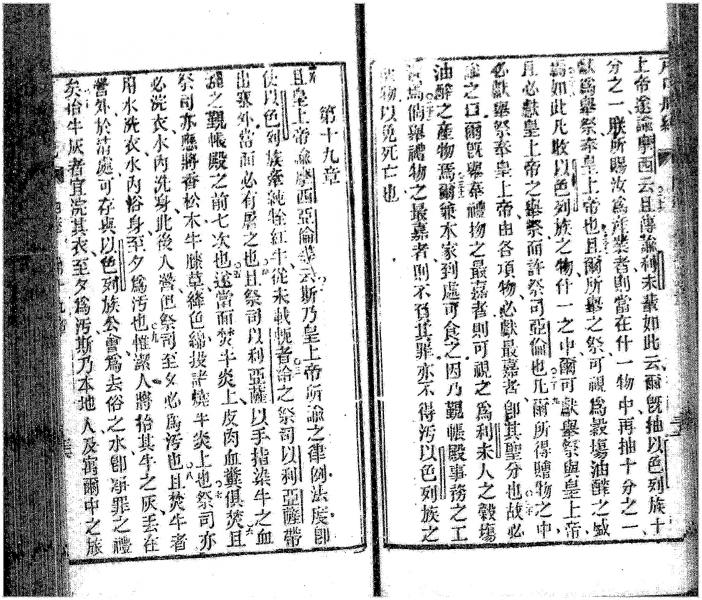 戶口册紀
上帝遂諭摩西云且傳諭利未輩如此云爾旣抽以色列族十
分之一朕所賜汝爲產業者則當在什一物中再抽十分之一
獻爲舉祭奉皇上帝也且爾所舉之祭可視爲穀場油醡之盛
焉如此凡收以色列族之物什一之中爾可獻舉祭與皇上帝
且必獻皇上帝之舉祭而許祭司亞倫也凡爾所得贈物之中
必獻舉祭奉皇上帝由各項物必獻最嘉者卽其聖分也故必
諭之曰爾旣舉奉禮物之最嘉者則可視之爲利未人之穀場
油醡之產物焉爾兼本家到處可食之因乃覲帳殿事務之工
焉倘舉禮物之最嘉者則不負其罪亦不得汚以色列族之
物以免死亡也
第十九章
且皇上帝諭摩西亞倫等云斯乃皇上帝所諭之律例法度卽
使以色列族牽純牸紅牛從未載軛者給之祭司以利亞薩帶
出寨外當面必有屠之也且祭司以利亞薩以手指染牛之血
灑之覲帳殿之前七次也遂當面焚牛炎上皮肉血糞俱焚且
祭司亦應將香松木牛膝草絳色綿投諸燒牛炎上也祭司亦
必浣衣水內洗身此後入營但祭司至夕必爲汚也且焚牛者
用水洗衣水內浴身至夕爲汚也惟潔人將拾其牛之灰丟在
營外於清處可存與以色列族公會爲去俗之水卽淨罪之禮
矣拾牛灰者宜浣其衣至夕爲汚斯乃本地人及寓爾中之族